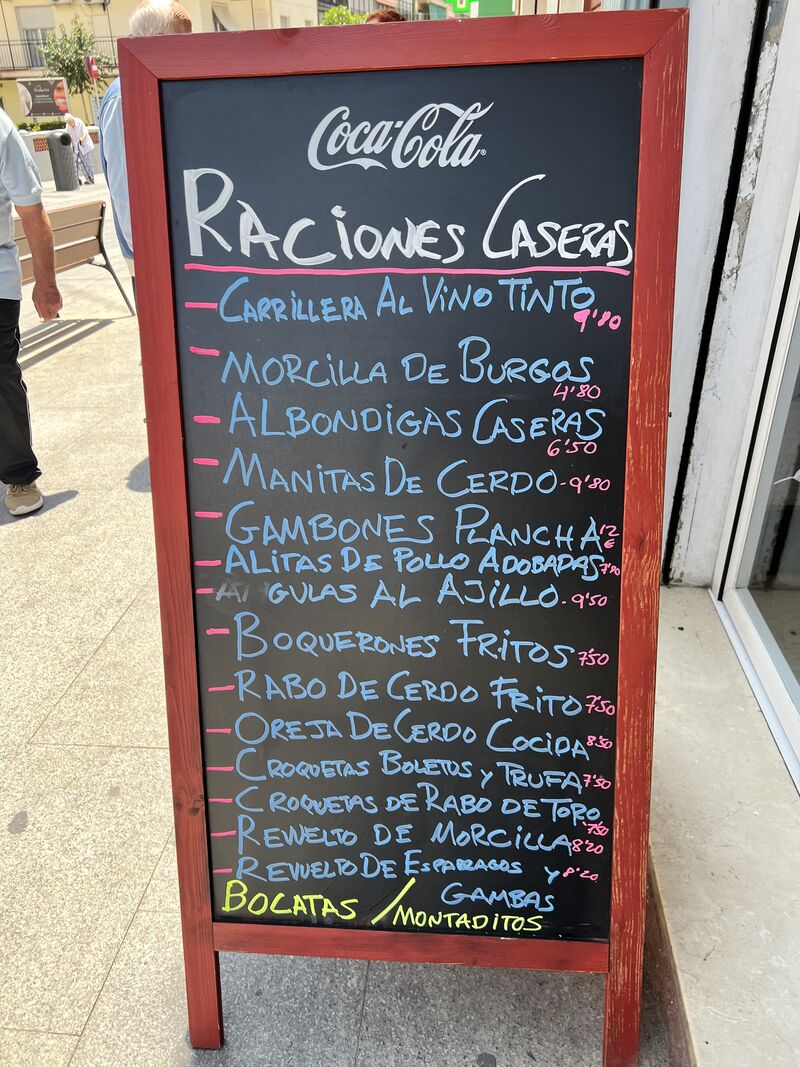 Coca-Cola
RACIONES CASERAS
- CARRILLERA AL VINO TINTO
9'80
- MORCILLA DE BURGOS
4'80
- ALBONDIGAS CASERAS
6'50
- MANITAS DE CERDO - 9'80
- GAMBONES PLANCHA 12 €
- ALITAS DE POLLO ADOBADAS 7'90
- GULAS AL AJILLO - 9'50
- BOQUERONES FRITOS 7'50
- RABO DE CERDO FRITO 7'50
- OREJA DE CERDO COCIDA 8'50
- CROQUETAS BOLETUS Y TRUFA 7'50
- CROQUETAS DE RABO DE TORO
7'50
- REVUELTO DE MORCILLA 8'20
- REVUELTO DE ESPARRAGOS Y 8'20
GAMBAS
BOCATAS / MONTADITOS